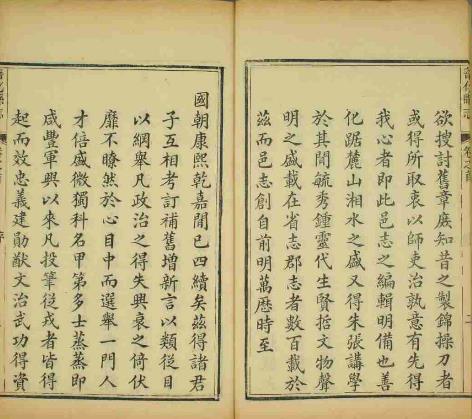 欲搜討舊章庶知昔之製錦操刀者
或得所取衷以師吏治孰意有先得
我心者即此邑志之編輯明備也善
化踞麓山湘水之盛又得朱張講學
於其間毓秀鍾靈代生賢哲文物聲
明之盛載在省志郡志者數百載於
茲而邑志創自前明萬歷時至
國朝康熙乾嘉間已四續矣茲得諸君
子互相考訂補舊增新言以類從目
以綱舉凡政治之得失興衰之倚伏
靡不瞭然於心目中而選舉一門人
才倍盛微獨科名甲第多士蒸蒸即
咸豐軍興以來凡投筆從戎者皆得
起而效忠義建勛猷文治武功得資